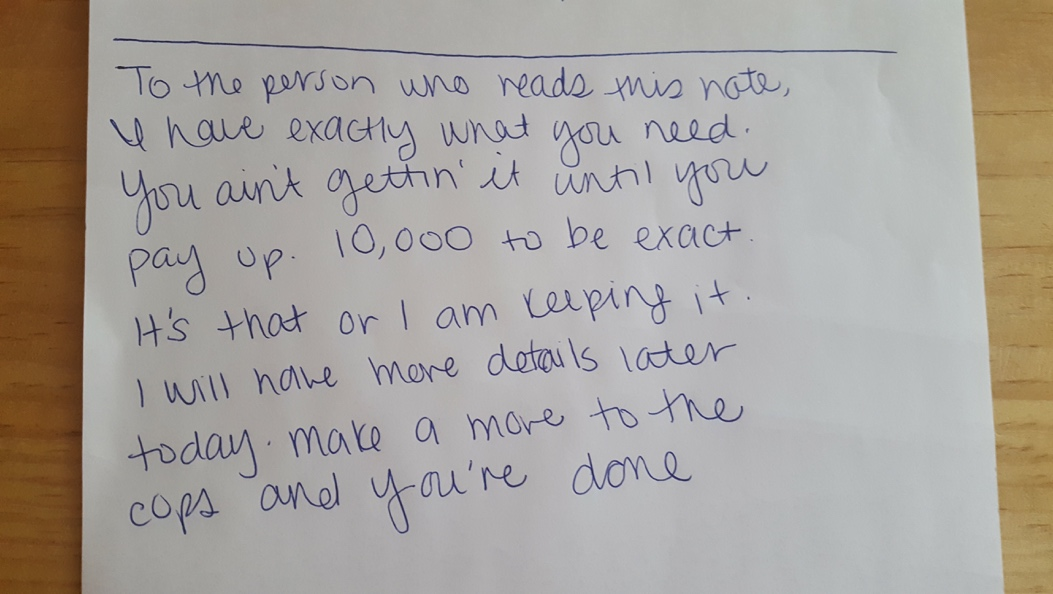 To the person who reads this note,
I have exactly what you need.
You ain't gettin' it until you
pay up. 10,000 to be exact.
It's that or I am keeping it.
I will have more details later
today. Make a move to the
cops and you're done